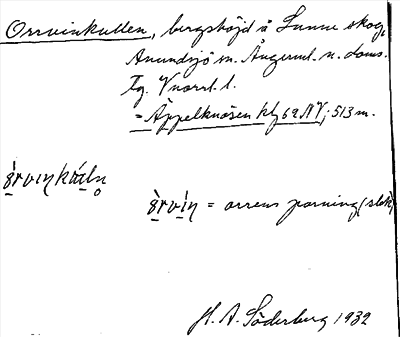 Orrvinkullen, bergshöjd å Lunne skog,
Anundsjö sn. Ångerml. n. doms.
Tg. Vnorrl. l.
= Äppelknösen kbl 62 NV; 513 m.
ørvɪŋkɵ̀lṇ
ørvɪŋ = orrens parning (slek)
H. A. Söderberg 1932